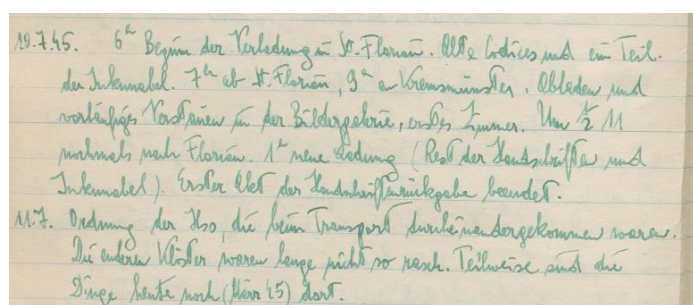 10.7.45. 6ʰ Beginn der Verladung in St. Florian. Alle Codices und ein Teil
der Inkunabel. 7ʰ ab St. Florian, 9ʰ an Kremsmünster. Abladen und
vorläufiges Verstauen in der Bildergalerie, erstes Zimmer. Um ½ 11
nochmals nach Florian. 1ʰ neue Ladung (Rest der Handschriften und
Inkunabel). Erster Akt der Handschriftenrückgabe beendet.
11.7. Ordnung der Hss, die beim Transport durcheinandergekommen waren.
Die anderen Klöster waren lange nicht so rasch. Teilweise sind die
Dinge heute noch (März 45) dort.